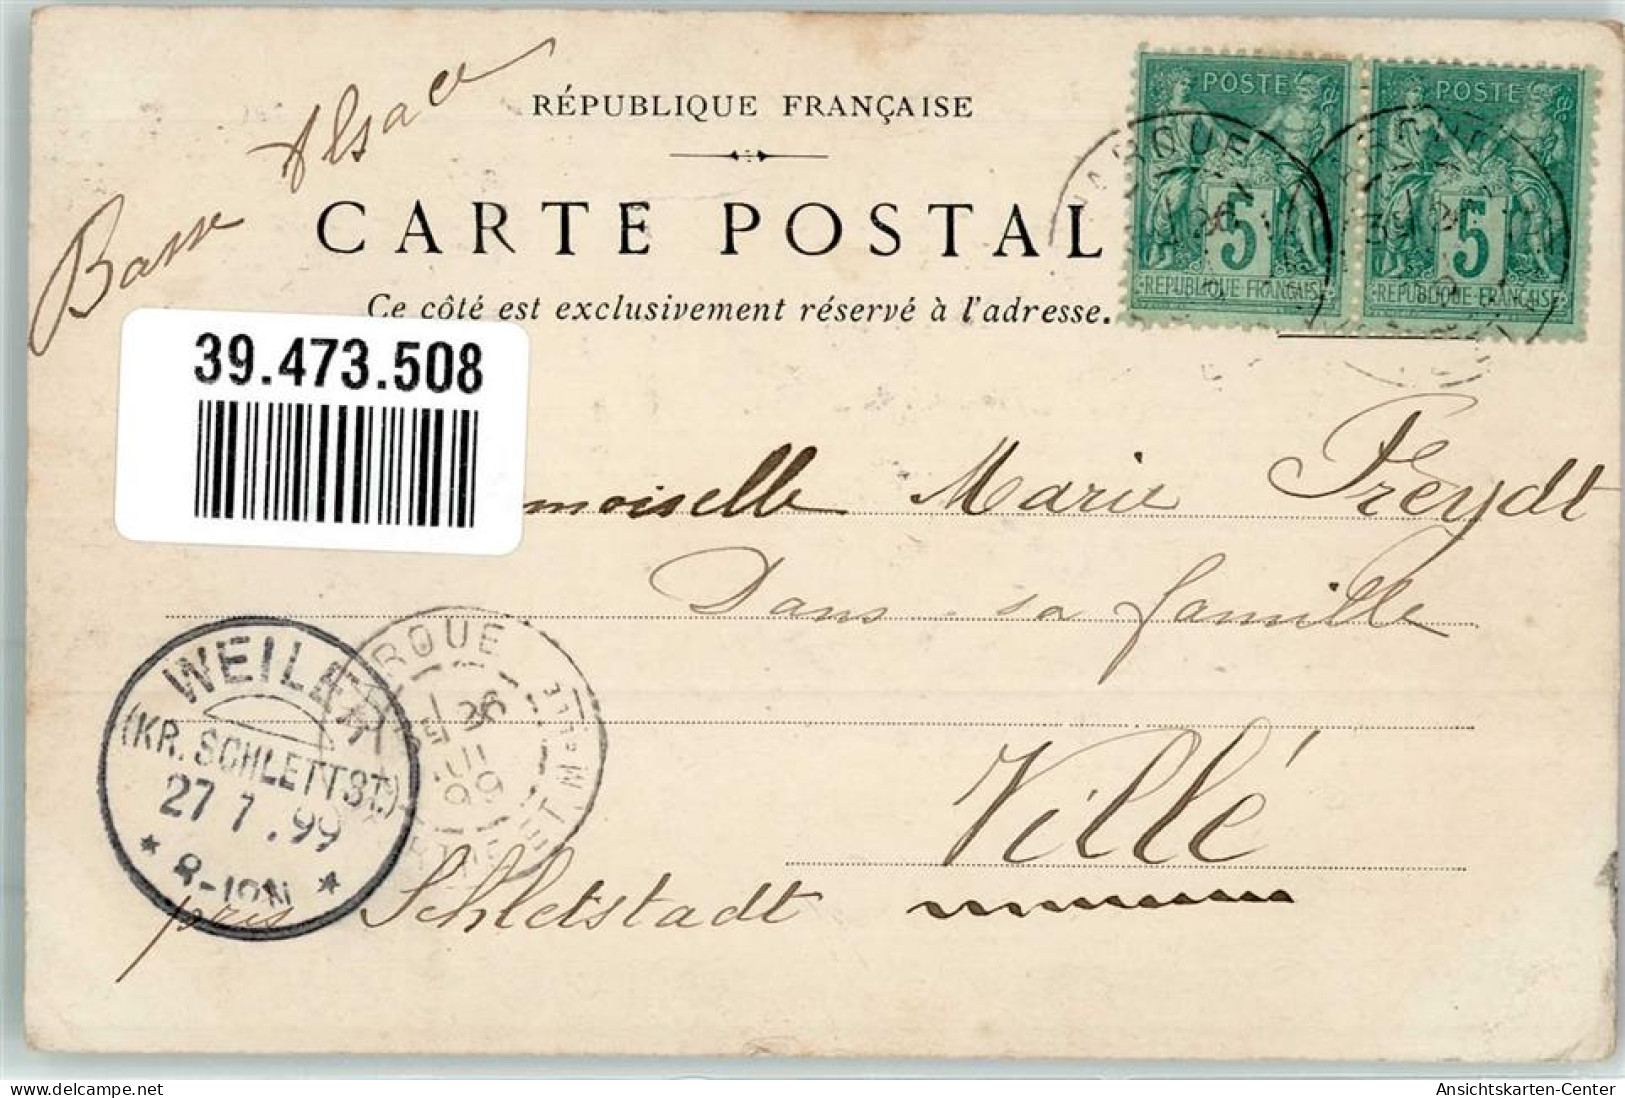 Basse Alsace
RÉPUBLIQUE FRANÇAISE
CARTE POSTAL
Ce côté est exclusivement réservé à l'adresse.
POSTE
5
RÉPUBLIQUE FRANÇAISE
POSTE
5
RÉPUBLIQUE FRANÇAISE
39.473.508
moiselle Marie Freydt
Dans sa famille
Villé
près Schletstadt
WEILER
(KR. SCHLETTST.)
27 7.99
* 8-10N *
ROUE
26
JUIL
99
Ansichtskarten-Center